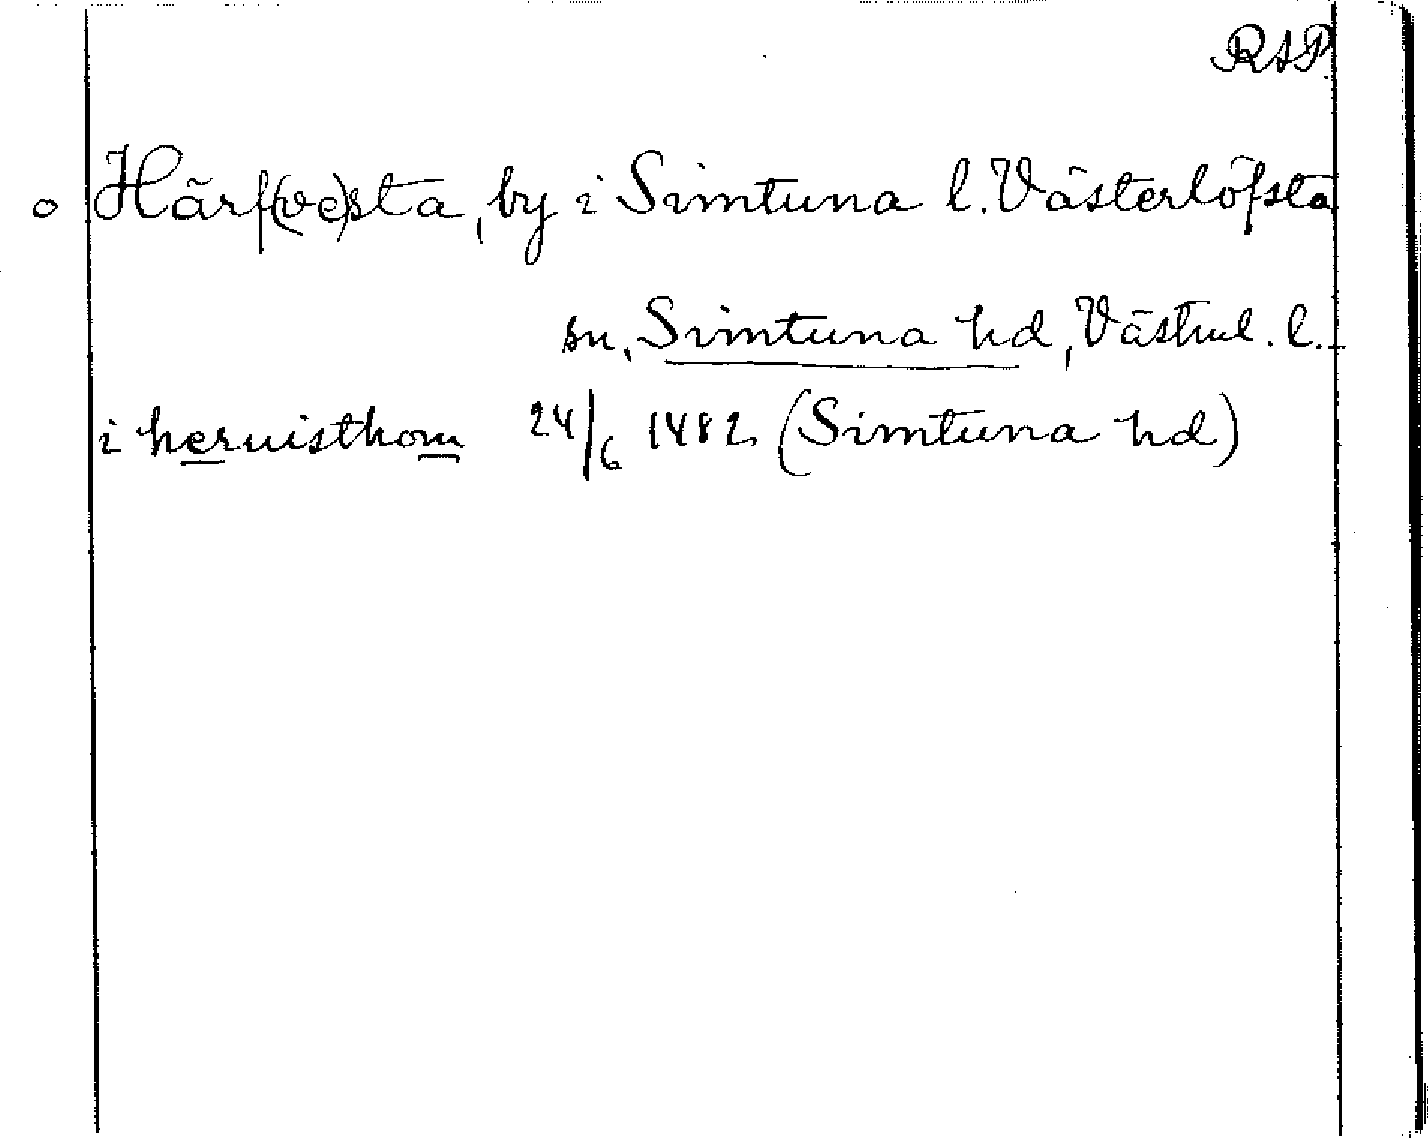 RAP.
o Härf(ve)sta, by i Simtuna l. Västerlöfsta
sn, Simtuna hd, Västml. l.
i heruisthom 24/6 1482 (Simtuna hd)